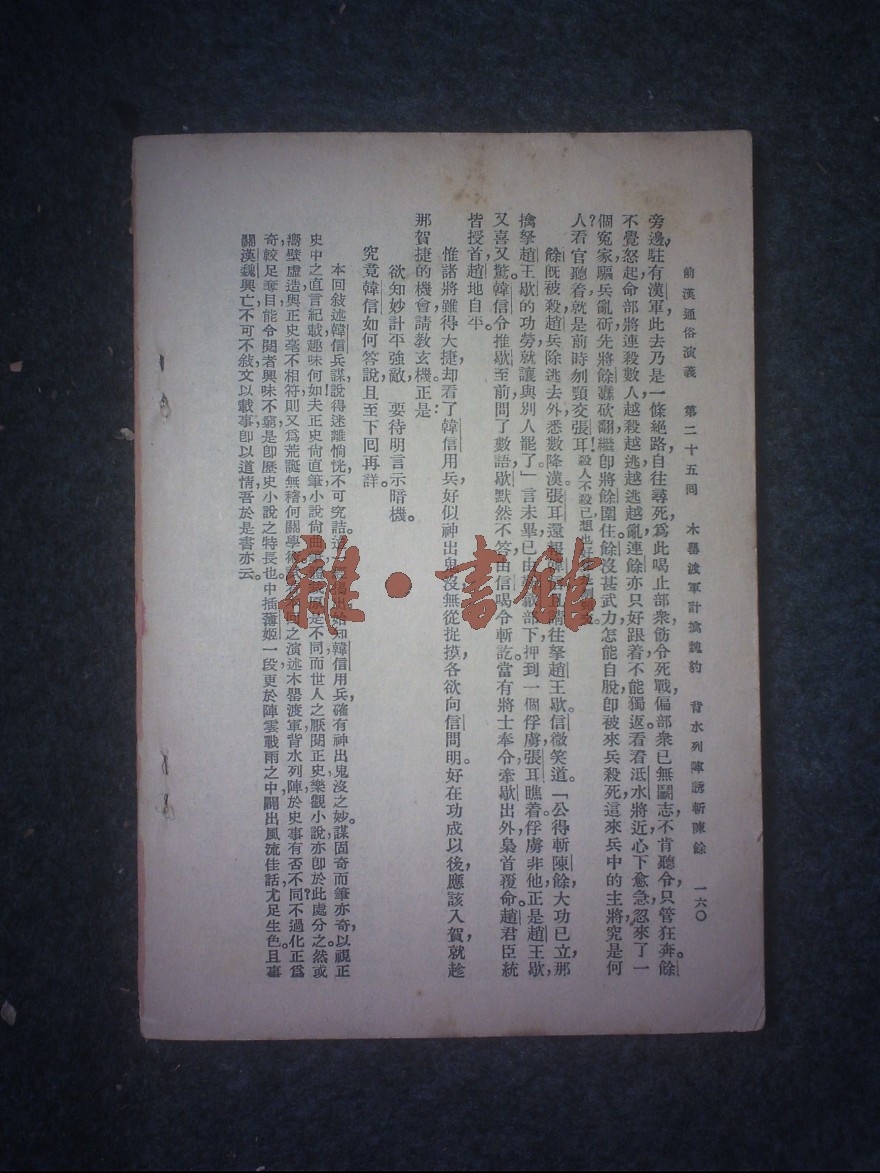 前漢通俗演義　第二十五回　木罌渡軍計擒魏豹　背水列陣誘斬陳餘　一六〇
旁邊，駐有漢軍，此去乃是一條絕路，自往尋死，爲此喝止部衆，飭令死戰，偏部衆已無鬭志，不肯聽令，只管狂奔。餘
不覺怒起，命部將連殺數人，越殺越逃，越逃越亂，連餘亦只好跟着，不能獨返。看看泜水將近，心下愈急，忽來了一
個冤家，驅兵亂斫，先將餘纛砍翻，繼卽將餘圍住。餘沒甚武力，怎能自脫，卽被來兵殺死，這來兵中的主將，究是何
人？看官聽着，就是前時刎頸交張耳！殺人不殺已想
餘旣被殺，趙兵除逃去外，悉數降漢。張耳還報 請往拏趙王歇。信微笑道：「公得斬陳餘，大功已立，那
擒拏趙王歇的功勞，就讓與別人罷了。」言未畢，已由 部下，押到一個俘虜，張耳瞧着，俘虜非他，正是趙王歇，
又喜又驚。韓信令推歇至前，問了數語，歇默然不答，由信喝令斬訖，當有將士奉令，牽歇出外，梟首覆命。趙君臣統
皆授首，趙地自平。
惟諸將雖得大捷，却看了韓信用兵，好似神出鬼沒，無從捉摸，各欲向信問明。好在功成以後，應該入賀，就趁
那賀捷的機會，請敎玄機。正是：
欲知妙計平強敵，　要待明言示暗機。
究竟韓信如何答說，且至下回再詳。
本回敍述韓信兵謀，說得迷離惝恍，不可究詰， 出，始知韓信用兵，確有神出鬼沒之妙。謀固奇而筆亦奇，以視正
史中之直言紀載，趣味何如！夫正史尙直筆，小說尙曲 原是不同，而世人之厭閱正史，樂觀小說，亦卽於此處分之。然或
嚮壁虛造，與正史毫不相符，則又爲荒誕無稽，何關學術 之演述木罌渡軍，背水列陣，於史事有否不同？不過化正爲
奇，較足奪目，能令閱者興味不窮，是卽歷史小說之特長也。中插薄姬一段，更於陣雲戰雨之中，闢出風流佳話，尤足生色。且事
關漢魏興亡，不可不敍，文以載事，卽以道情，吾於是書亦云。
雜·書館